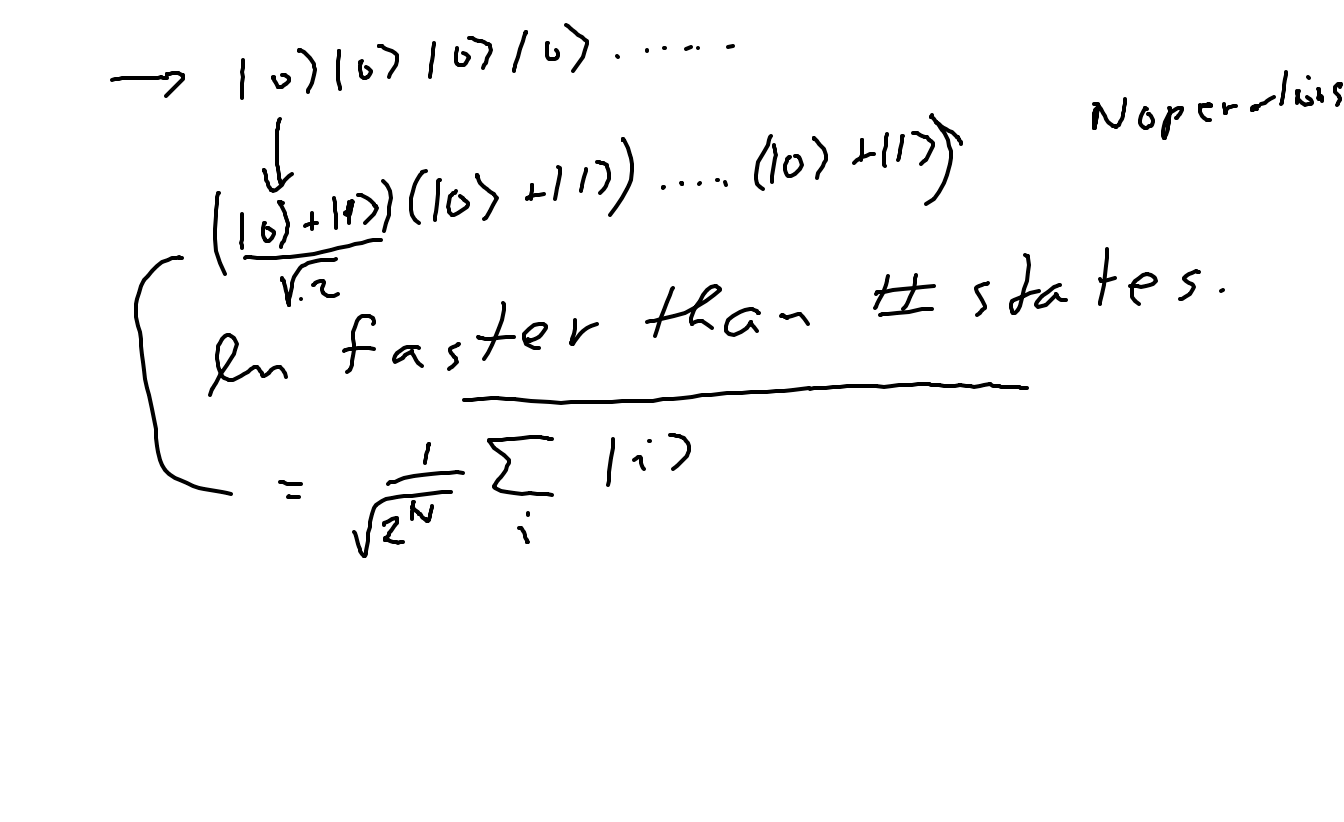 → |0⟩|0⟩|0⟩|0⟩ . ......
N operations
↓
(|0⟩+|1⟩)/√2 (|0⟩+|1⟩) ..... (|0⟩+|1⟩)
ln faster than # states.
= 1/√2^N Σ_i |i⟩